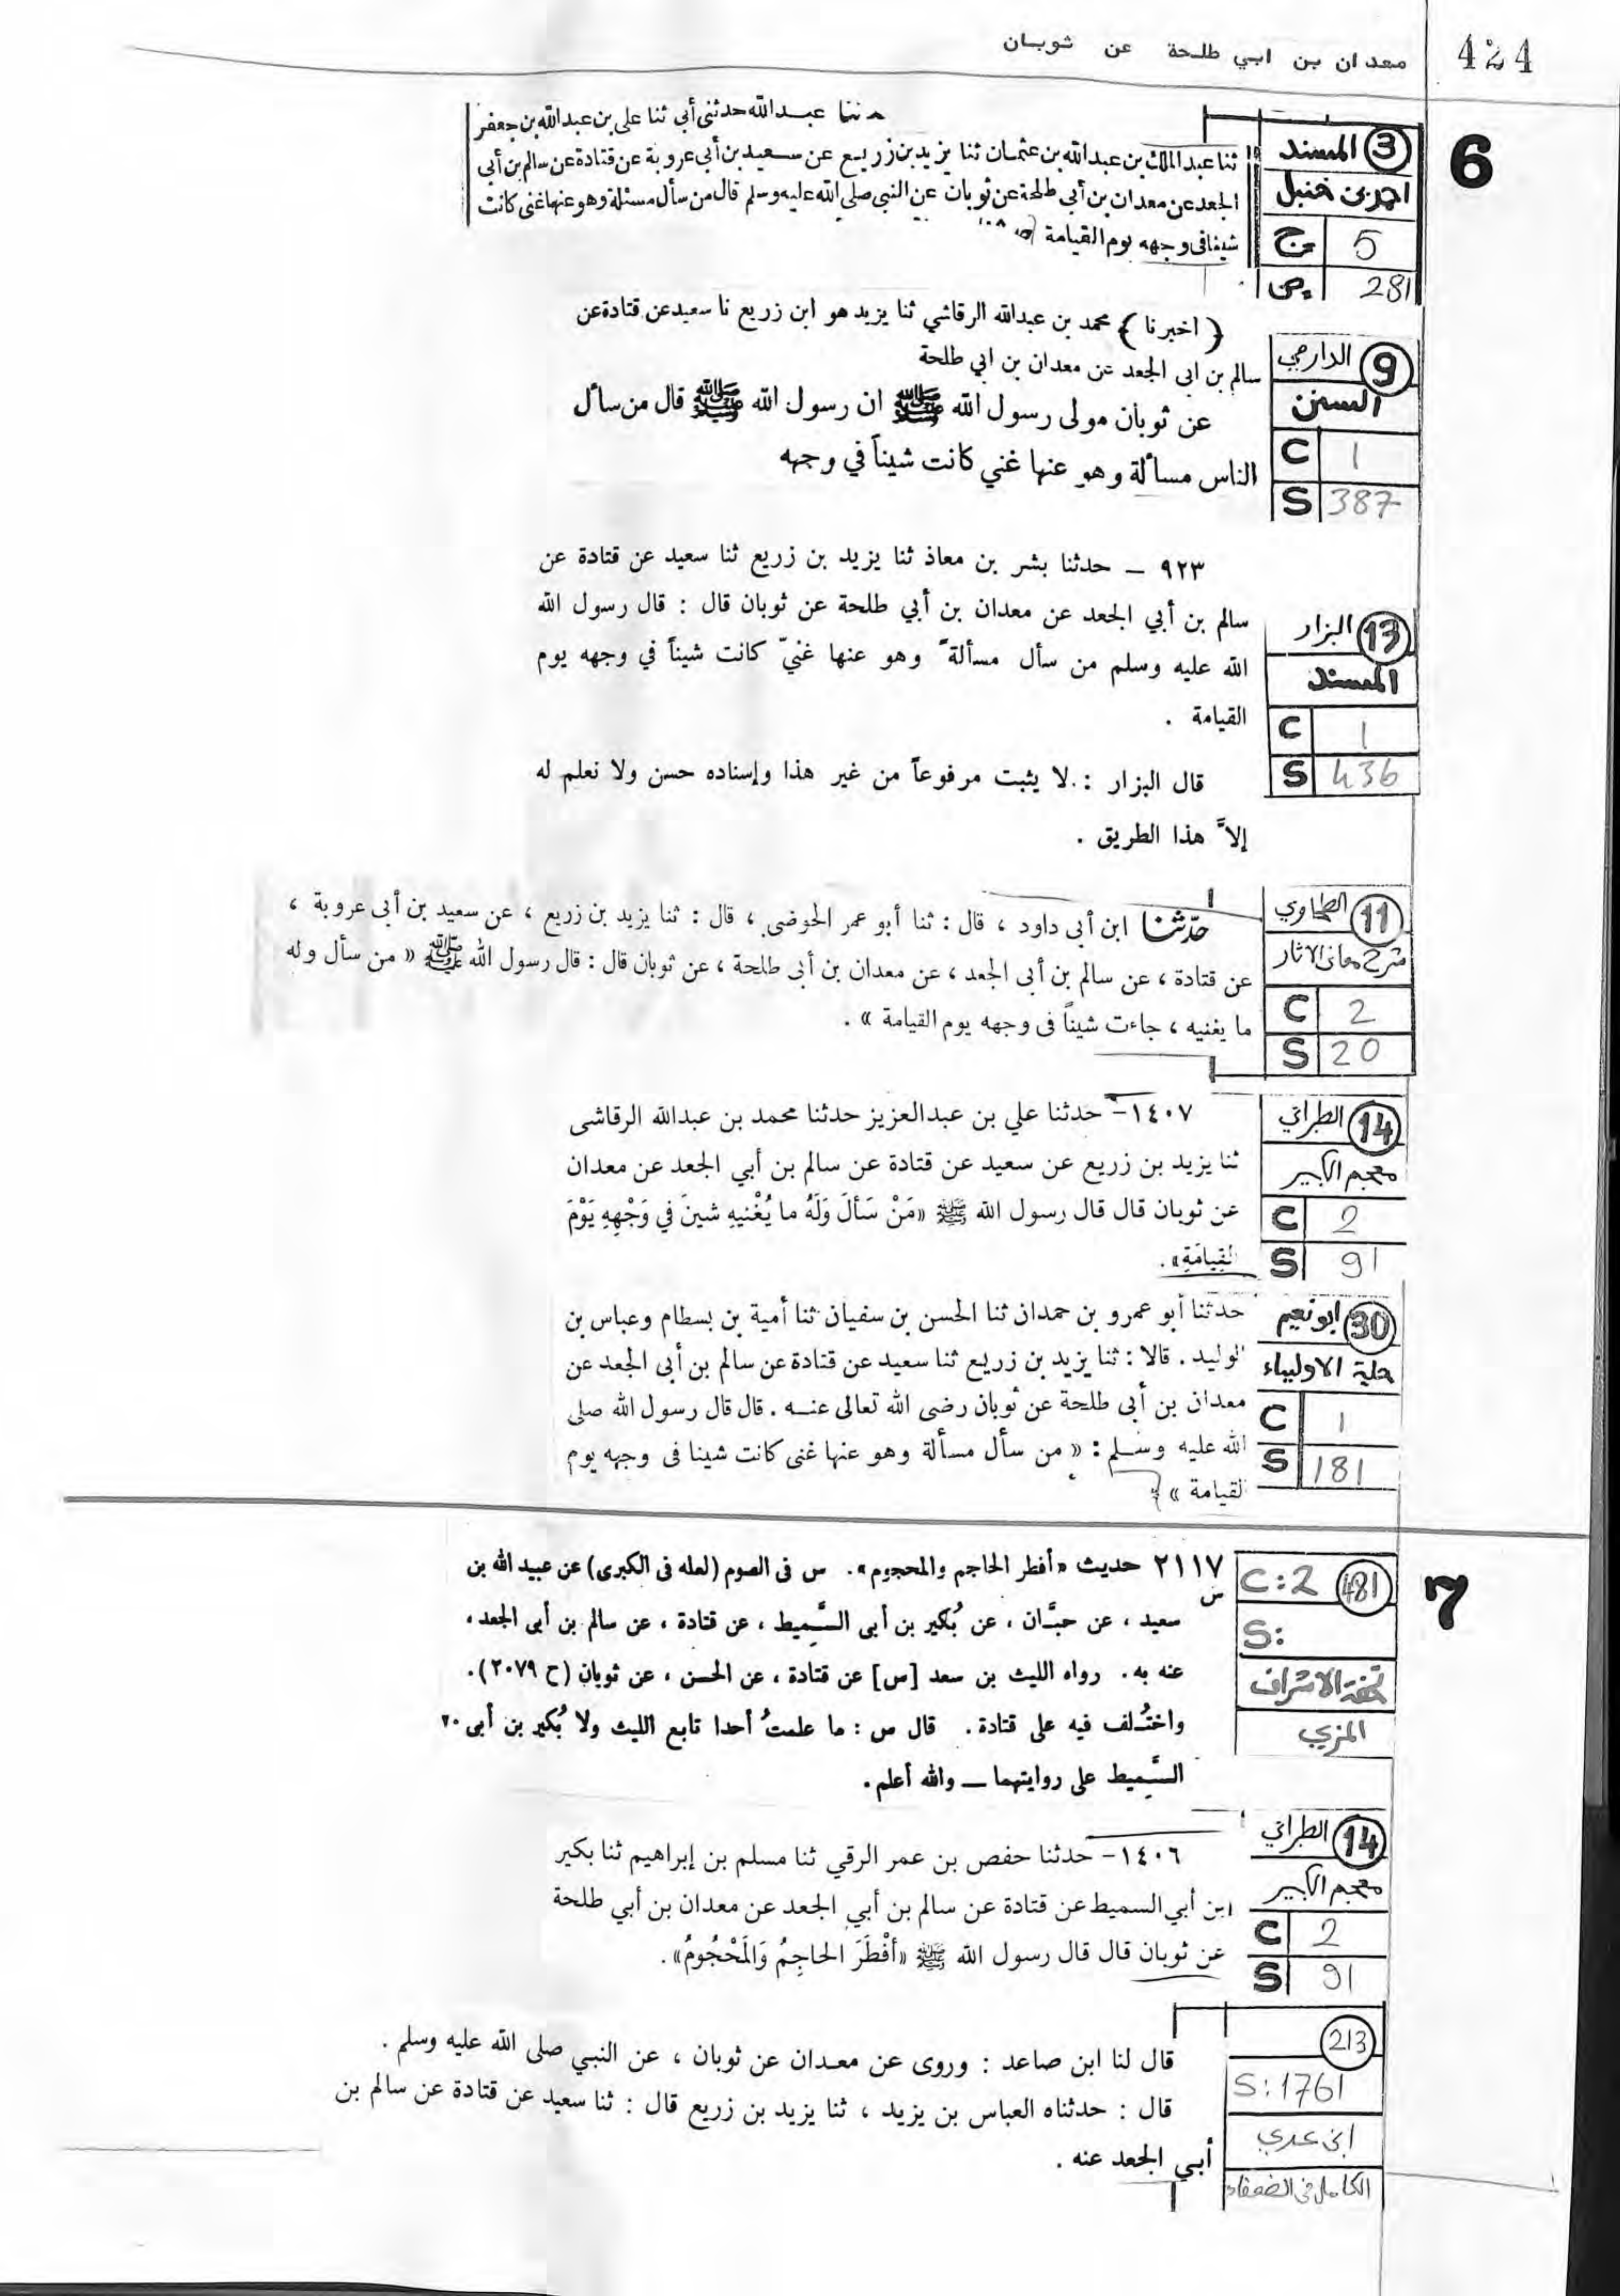 معدان بن ابي طلحة عن ثوبان 424
6
3 المسند
احمد بن حنبل
ج 5
ص 281
حدثنا عبد الله حدثنى أبى ثنا على بن عبد الله بن جعفر
ثنا عبد الملك بن عبد الله بن عثمان ثنا يزيد بن زريع عن سعيد بن أبى عروبة عن قتادة عن سالم بن أبى
الجعد عن معدان بن أبى طلحة عن ثوبان عن النبى صلى الله عليه وسلم قال من سأل مسئلة وهو عنها غنى كانت
شينا فى وجهه يوم القيامة
9 الدارمي
السنن
C 1
S 387
﴿ اخبرنا ﴾ محمد بن عبدالله الرقاشي ثنا يزيد هو ابن زريع نا سعيد عن قتادة عن
سالم بن ابى الجعد عن معدان بن ابي طلحة
عن ثوبان مولى رسول الله ﷺ ان رسول الله ﷺ قال من سأل
الناس مسألة وهو عنها غني كانت شيناً في وجهه
13 البزار
المسند
C 1
S 436
٩٢٣ – حدثنا بشر بن معاذ ثنا يزيد بن زريع ثنا سعيد عن قتادة عن
سالم بن أبي الجعد عن معدان بن أبي طلحة عن ثوبان قال : قال رسول الله
الله عليه وسلم من سأل مسألةً وهو عنها غنيّ كانت شيناً في وجهه يوم
القيامة .
قال البزار : لا يثبت مرفوعاً من غير هذا وإسناده حسن ولا نعلم له
إلاَّ هذا الطريق .
11 الطحاوي
شرح معاني الاثار
C 2
S 20
حدّثنا ابن أبى داود ، قال : ثنا أبو عمر الحوضى ، قال : ثنا يزيد بن زريع ، عن سعيد بن أبى عروبة ،
عن قتادة ، عن سالم بن أبى الجعد ، عن معدان بن أبى طلحة ، عن ثوبان قال : قال رسول الله ﷺ « من سأل وله
ما يغنيه ، جاءت شيناً فى وجهه يوم القيامة » .
14 الطبراني
معجم الكبير
C 2
S 91
١٤٠٧– حدثنا علي بن عبدالعزيز حدثنا محمد بن عبدالله الرقاشى
ثنا يزيد بن زريع عن سعيد عن قتادة عن سالم بن أبي الجعد عن معدان
عن ثوبان قال قال رسول الله ﷺ «مَنْ سَأَلَ وَلَهُ ما يُغْنيهِ شينَ في وَجْهِهِ يَوْمَ
القِيامَةِ» .
30 ابو نعيم
حلية الاولياء
C 1
S 181
حدثنا أبو عمرو بن حمدان ثنا الحسن بن سفيان ثنا أمية بن بسطام وعباس بن
الوليد . قالا : ثنا يزيد بن زريع ثنا سعيد عن قتادة عن سالم بن أبى الجعد عن
معدان بن أبى طلحة عن ثوبان رضى الله تعالى عنه . قال قال رسول الله صلى
الله عليه وسلم : « من سأل مسألة وهو عنها غنى كانت شينا فى وجهه يوم
القيامة »
7
481 C:2
S:
تحفة الاشراف
المزي
٢١١٧ حديث «أفطر الحاجم والمحجوم». س فى الصوم (لعله فى الكبرى) عن عبيد الله بن
س
سعيد ، عن حبَّان ، عن بُكير بن أبى السَّمِيط ، عن قتادة ، عن سالم بن أبى الجعد ،
عنه به . رواه الليث بن سعد [س] عن قتادة ، عن الحسن ، عن ثوبان (ح ٢٠٧٩).
واختُلف فيه على قتادة . قال س : ما علمتُ أحدا تابع الليث ولا بُكير بن أبى ٢٠
السَّمِيط على روايتهما — والله أعلم .
14 الطبراني
معجم الكبير
C 2
S 91
١٤٠٦– حدثنا حفص بن عمر الرقي ثنا مسلم بن إبراهيم ثنا بكير
ابن أبي السميط عن قتادة عن سالم بن أبي الجعد عن معدان بن أبي طلحة
عن ثوبان قال قال رسول الله ﷺ «أَفْطَرَ الحاجِمُ وَالمَحْجُومُ» .
213
S:1761
ابن عدي
الكامل في الضعفاء
قال لنا ابن صاعد : وروى عن معدان عن ثوبان ، عن النبي صلى الله عليه وسلم .
قال : حدثناه العباس بن يزيد ، ثنا يزيد بن زريع قال : ثنا سعيد عن قتادة عن سالم بن
أبي الجعد عنه .